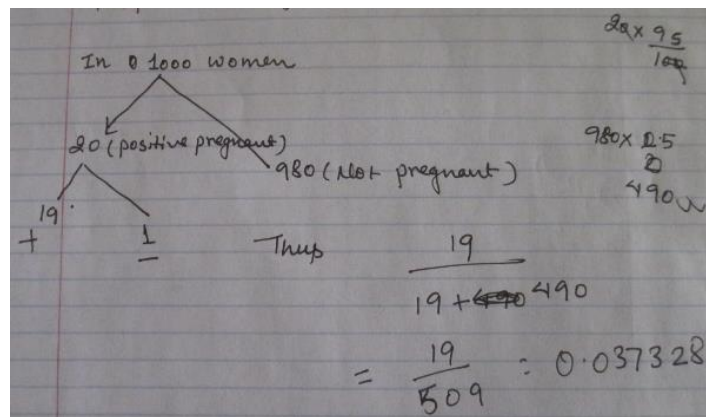 In 1000 women
20 x 95
100
20 (positive pregnant)
980 (Not pregnant)
980 x 0.5
490
19
+
1
Thus
19
19 + 490
= 19
509
: 0.037328